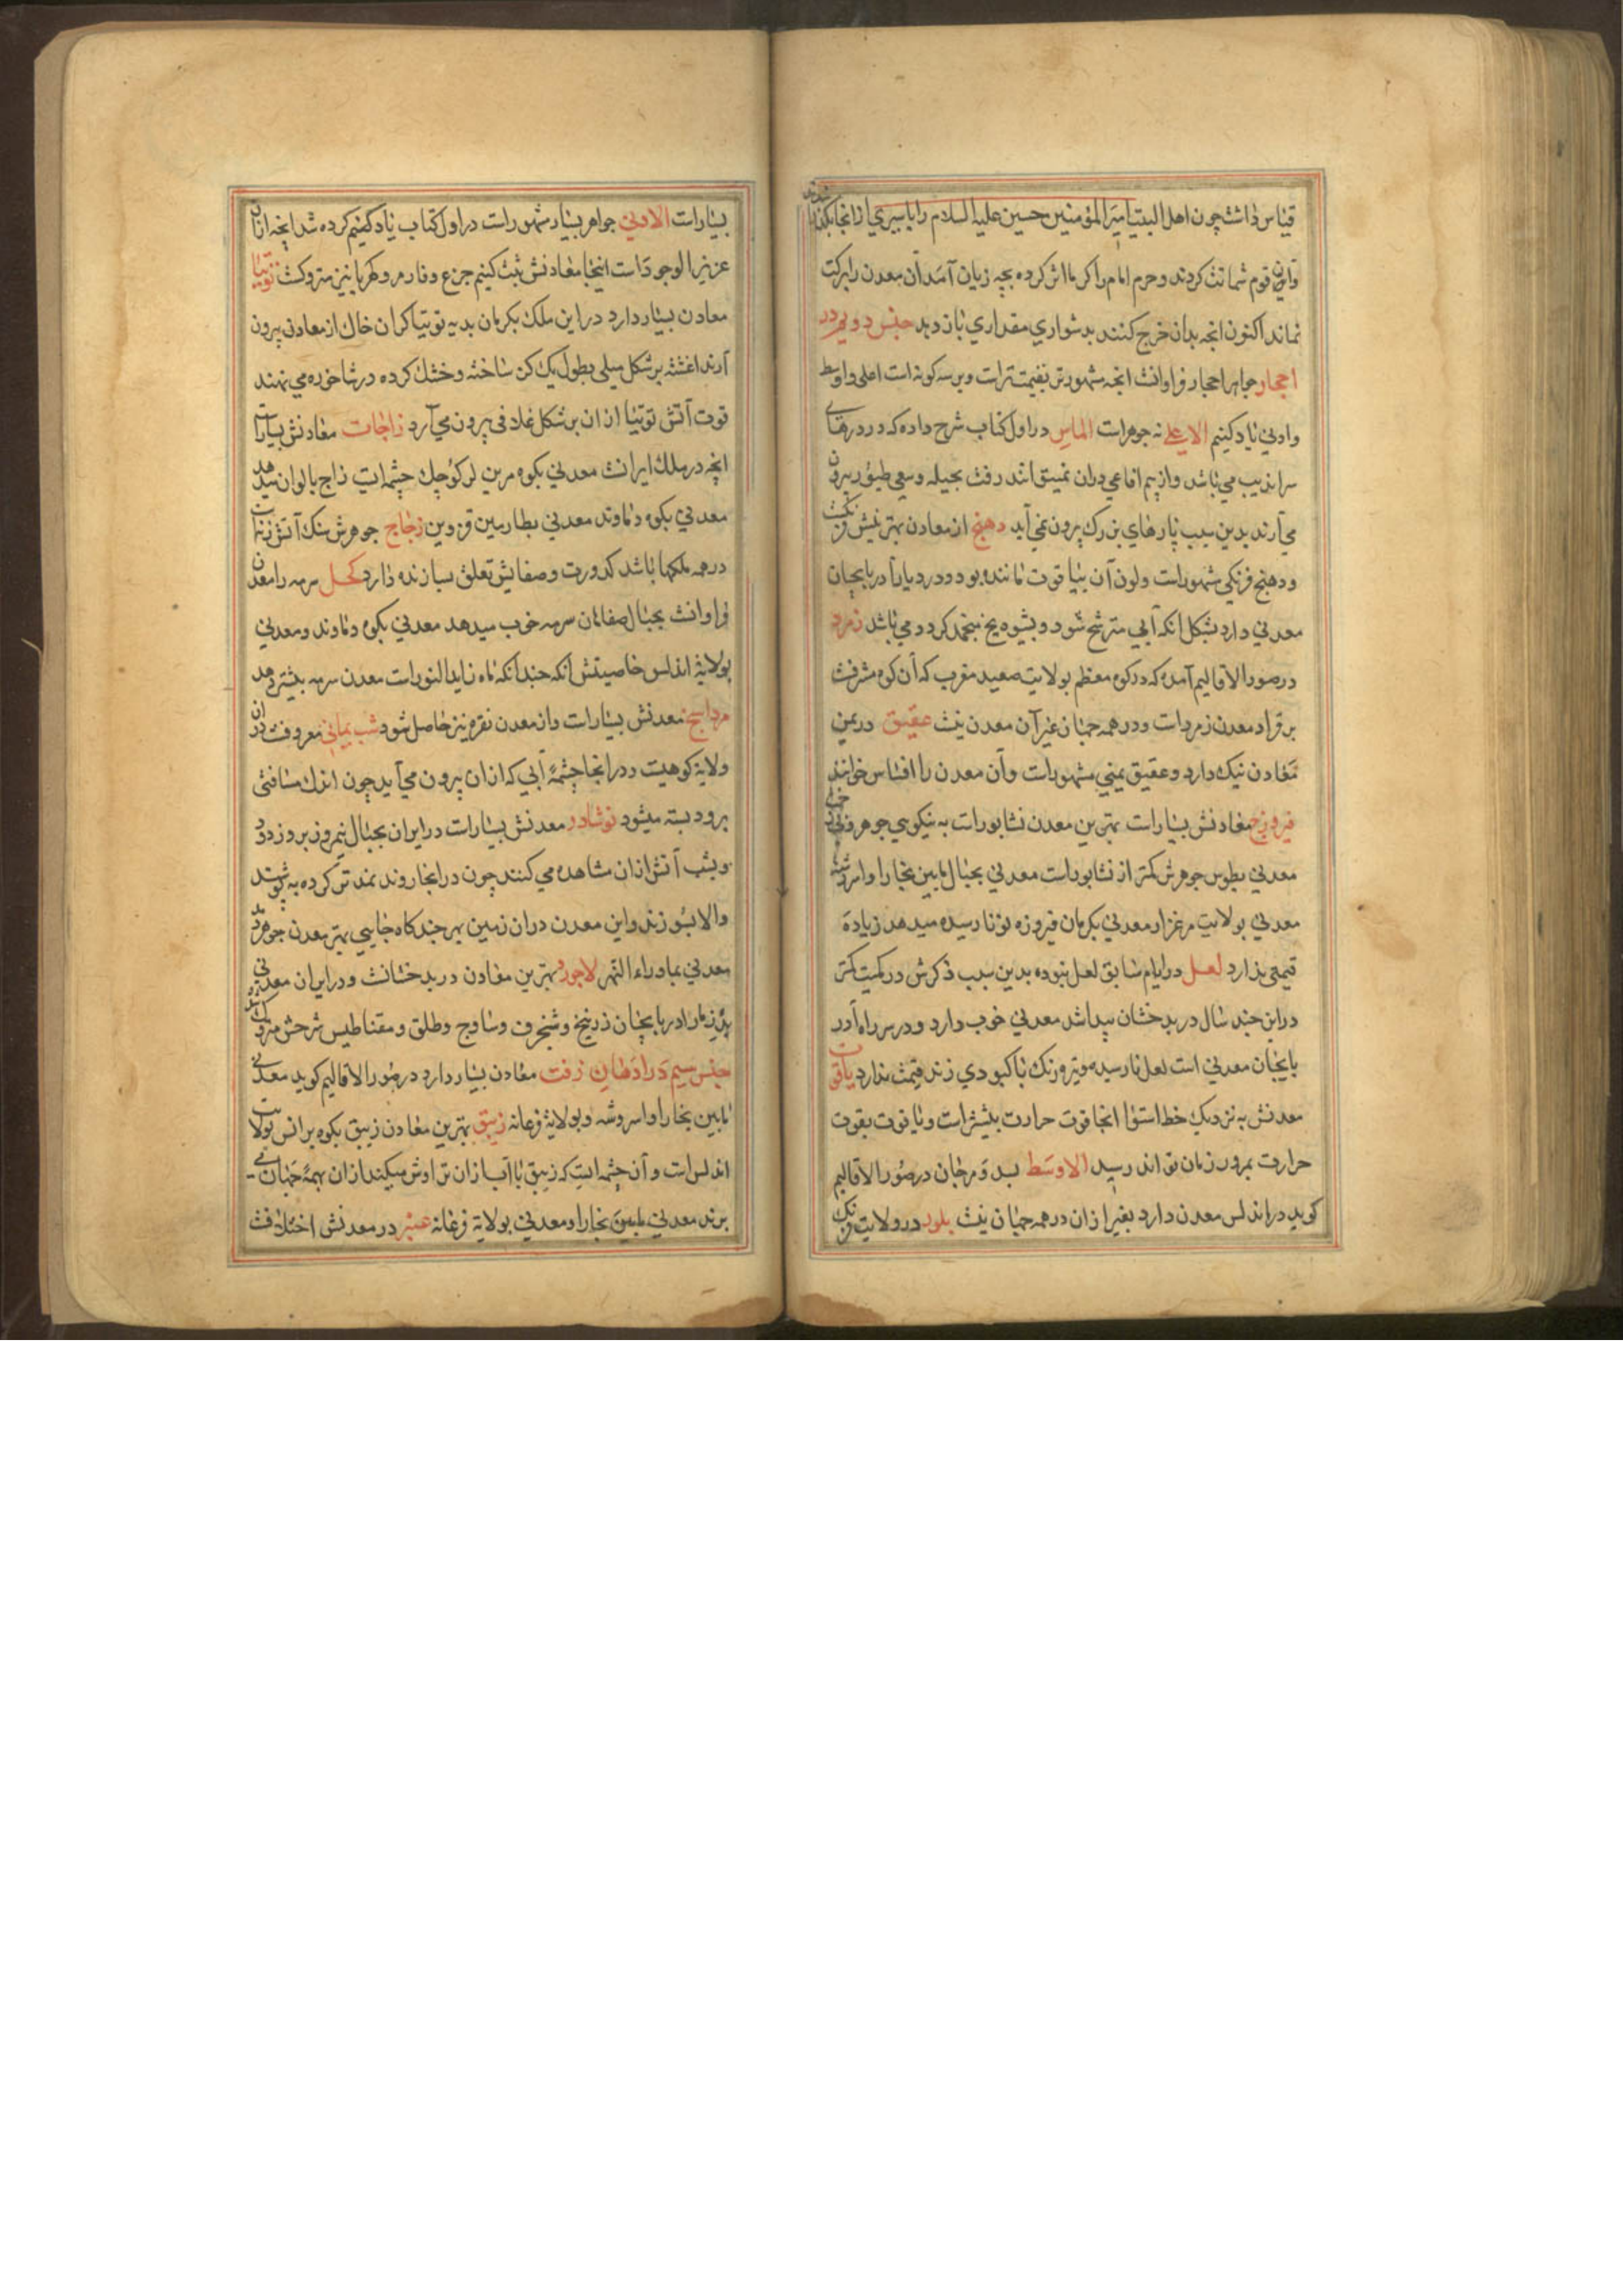 قیاس داشت چون اهل البیت امیر المؤمنین حسین علیه السلام را باسیری از انجا بگذرانیدند
و این قوم شماتت کردند و حرم امام را کر ما اثر کرده بچه زیان آمد آن معدن را برکت
نماند اکنون انچه بدان خرج کنند بدشواری مقداری باز دهد جنس دویم در
احجار جواهر احجار فراوانست انچه مشهورتر بقیمت‌تر است و بر سه کونه است اعلی و اوسط
و ادنی یاد کنیم الاعلی نه جوهر است الماس در اول کتاب شرح داده که در درهای
سراندیب می باشد و از بیم افاعی دران نمیتوانند رفت بحیله و سعی طیور بیرون
می آرند بدین سبب پارهای بزرک بیرون نمی آید دهنج از معادن بهترینش فرنکست
و دهنج فرنکی مشهور است و لون آن بیاقوت ماننده بود و در دیار آذربایجان
معدنی دارد بشکل انکه آبی مترشح شود و بشیوه یخ منجمد کردد می باشد زمرد
در صور الاقالیم آمده که در کوه معظم بولایت صعید مغرب که آن کوه مشرفست
بر قراد معدن زمرد است و در همه جهان غیر آن معدن نیست عقیق در یمن
معادن نیک دارد و عقیق یمنی مشهور است و آن معدن را افساس خوانند
فیروزج معادنش بسیار است بهترین معدن نشابور است به نیکویی جوهر و فراخی
معدنی بطوس جوهرش کمتر از نشابور است معدنی بجبال مابین بخارا و اسروشنه
معدنی بولایت مرغزار معدنی بکرمان فیروزه نو نارسیده میدهد زیاده
قیمتی ندارد لعل در ایام سابق لعل نبوده بدین سبب ذکرش در کمیت کمتر
در این چند سال در بدخشان پیدا شد معدنی خوب دارد و در سر راه آذر
بایجان معدنی است لعل نارسیده و تیره رنک با کبودی زند قیمت ندارد یاقوت
معدنش به نزدیک خط استوا انجا قوت حرارت بیشتر است و یاقوت بقوت
حرارت بمرور زمان تواند رسید الاوسط بسد و مرجان در صور الاقالیم
کوید در اندلس معدن دارد بغیر از ان در همه جهان نیست بلور در ولایت فرنک
بسیار است الادنی جواهر بسیار مشهور است در اول کتاب یاد کنیم کرده شد انچه از ان
عزیز الوجود است اینجا معادنش ثبت کنیم جزع و فادزهر و کهربا نیز متروکست توتیا
معادن بسیار دارد در این ملک بکرمان بدیه توتیاکران خاک از معادن بیرون
آرند اغشته بر شکل میلی بطول یک کز ساخته و خشک کرده در شاخوره می نهند
قوت آتش توتیا از ان بر شکل غلافی بیرون می آرد زاجات معادنش بسیار است
انچه در ملک ایرانست معدنی بکوه مرین لر کوچک چشمه ایست زاج بالوان میدهد
معدنی بکوه دماوند معدنی بطارمین قزوین زجاج جوهرش سنک آتش زنه است
در همه ملکها باشد کدورت و صفایش تعلق بسازنده دارد کحل سرمه را معدن
فراوانست بجبال اصفاهان سرمه خوب میدهد معدنی بکوه دماوند و معدنی
بولایة اندلس خاصیتش آنکه چندانکه ماه زاید النور است معدن سرمه بیشتر دهد
مرداسنج معدنش بسیار است و از معدن نقره نیز حاصل شود شب یمانی معروفست دران
ولایة کوهیست در انجا چشمهٔ آبی که از ان بیرون می آید چون اندک مسافتی
برود بسته میشود نوشادر معدنش بسیار است در ایران بجبال نیمروز بروز دود
و بشب آتش از ان مشاهده می کنند چون در انجا روند نمد تر کرده به پوشند
و الا بسوزند و این معدن در ان زمین بهر چند کاه جایی بهتر معدن جوهر دهد
معدنی بماوراء النهر لاجورد بهترین معادن در بدخشانست و در ایران معدنی
باذربایجان زرنیخ و شنجرف و ساوج و طلق و مقناطیس شرحش متروک شد
جنس سیم در ادهان زفت معادن بسیار دارد در صور الاقالیم کوید معدنی
مابین بخارا و اسروشنه و بولایة فرغانه زیبق بهترین معادن زیبق بکوه برانس بولایت
اندلس است و آن چشمه ایست که زیبق با آب از ان تراوش میکند از ان بهمهٔ جهان می
برند معدنی مابین بخارا و معدنی بولایة فرغانه عنبر در معدنش اختلافست